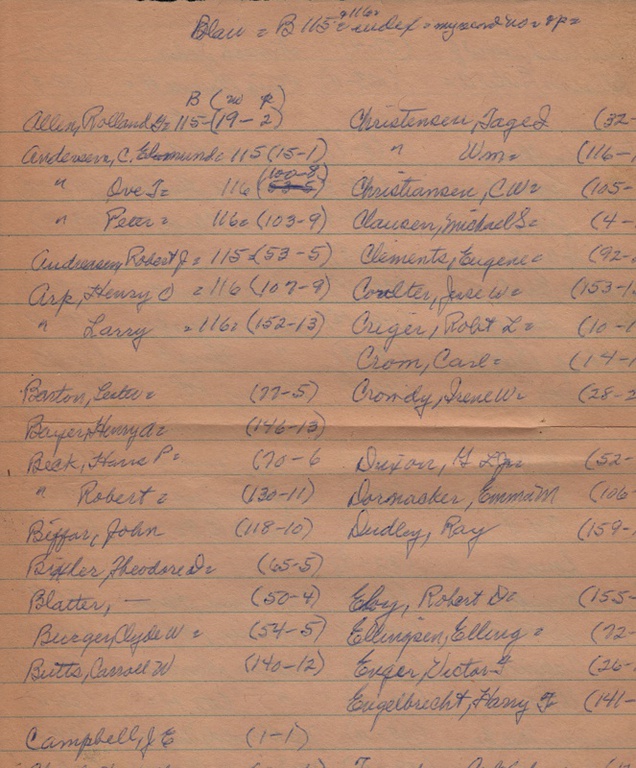 Blair = B 115 = 116 = index = my record no = & p =
B (no p)
Allen, Rolland G = 115 - (19 - 2)
Andersen, C. Edmund = 115 (15-1)
" Ove T = 116 (100-8)
" Peter = 116 = (103-9)
Andreasen, Robert J = 115 = (53-5)
Arp, Henry O = 116 (107-9)
" Larry = 116 = (152-13)
Barton, Lester = (77-5)
Bayer, Henry A = (146-13)
Beck, Hans P = (70-6
" Robert = (130-11)
Biffar, John (118-10)
Bixler, Theodore D = (65-5)
Blatter, — (50-4)
Burger, Clyde W = (54-5)
Butts, Carroll W (140-12)
Campbell, J E (1-1)
Christensen, Tage J (32-
" Wm = (116-1
Christiansen, C W = (105-
Clausen, Michael S = (4-
Clements, Eugene = (92-
Coulter, Jesse W = (153-1
Criger, Robt L = (10-1
Crom, Carl = (14-1
Crowdy, Irene W = (28-2
Dixon, H L Jr = (52-
Dormacker, Emma M (106
Dudley, Ray (159-1
Eloy, Robert D = (155-
Ellingsen, Elling = (72-
Enger, Victor F (26-1
Engelbrecht, Harry F (141-